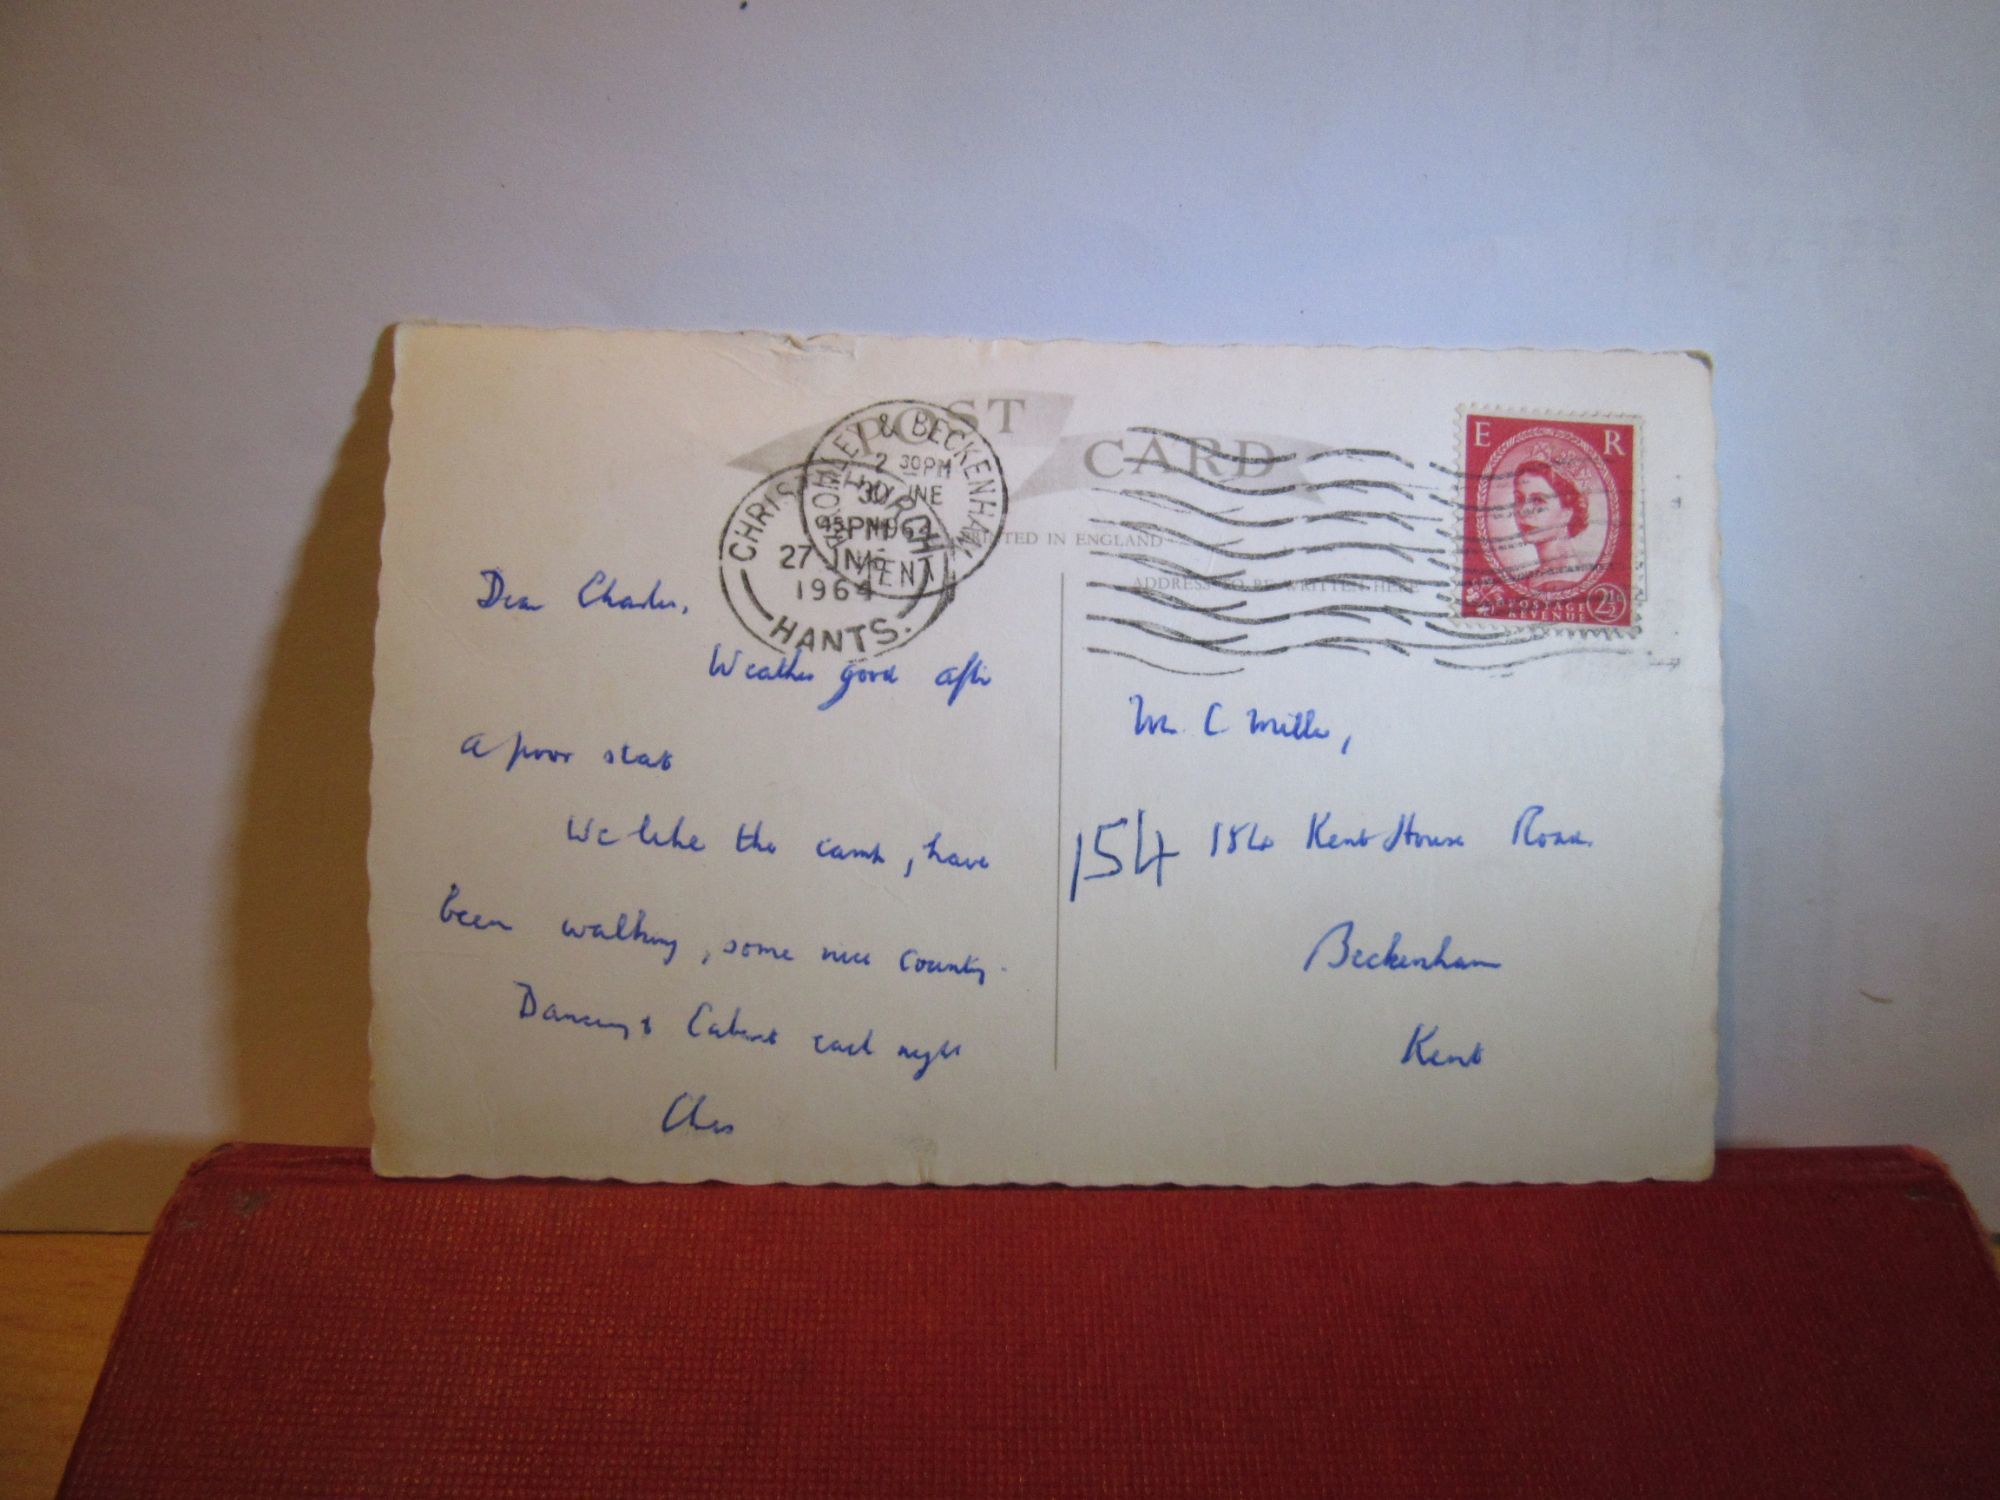 POST
CARD
PRINTED IN ENGLAND
ADDRESS TO BE WRITTEN HERE
BROMLEY & BECKENHAM
2 30PM
30 JNE
1964
KENT
CHRISTCHURCH
PM
27 JNE
1964
HANTS.
E R
POSTAGE
REVENUE
2½
Dear Charles,
Weather good after
a poor start
We like the camp, have
been walking, some nice country.
Dancing & Cabaret each night
Chas
Mr. C Miller,
154 184 Kent House Road
Beckenham
Kent